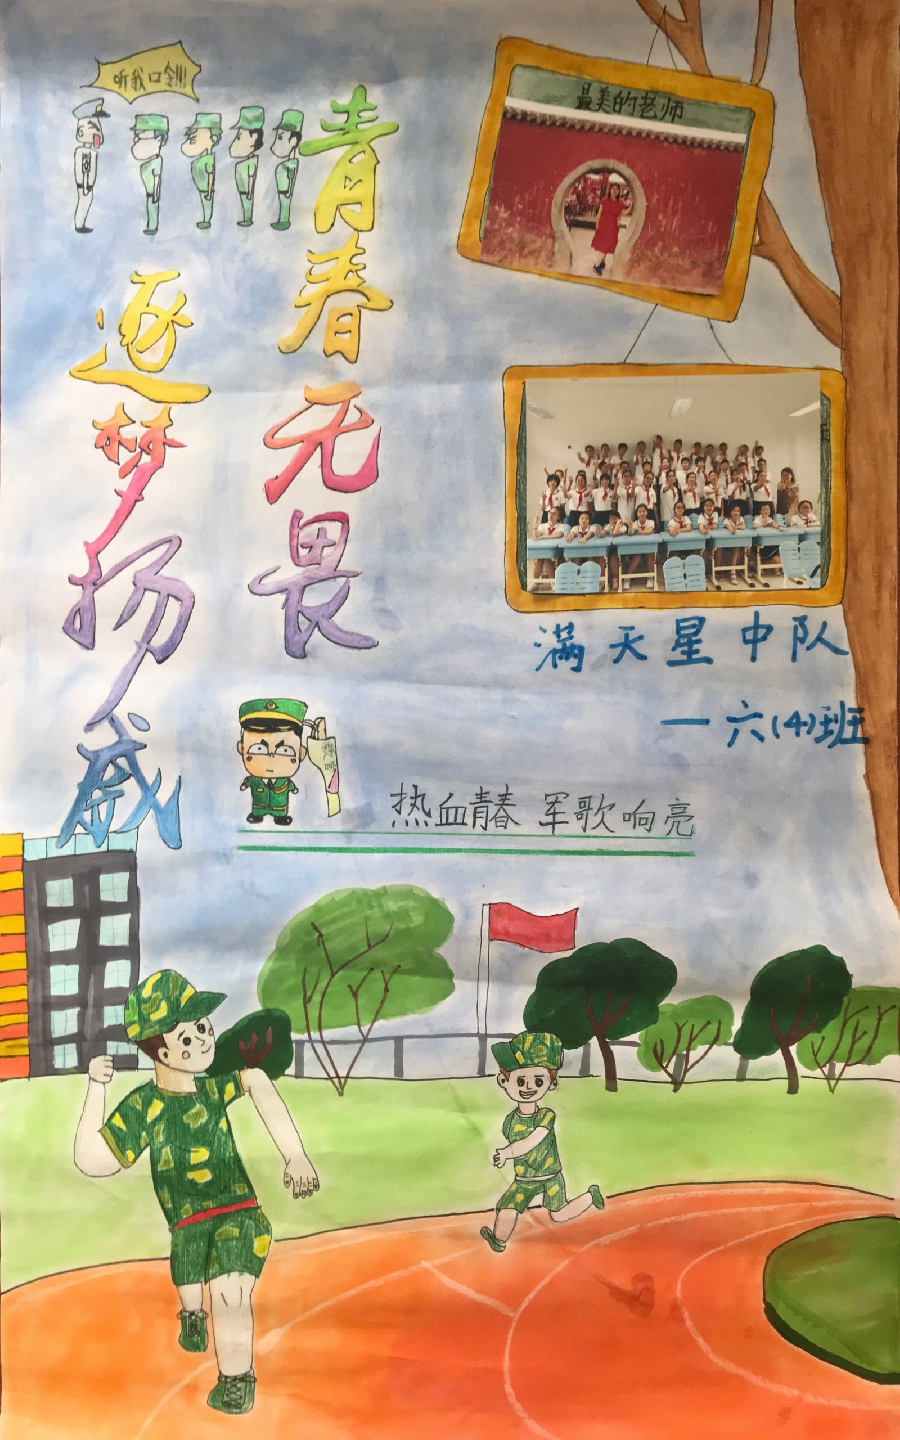 听我口令!!!
青春无畏
逐梦扬威
最美的老师
满天星中队
一六(4)班
热血青春 军歌响亮